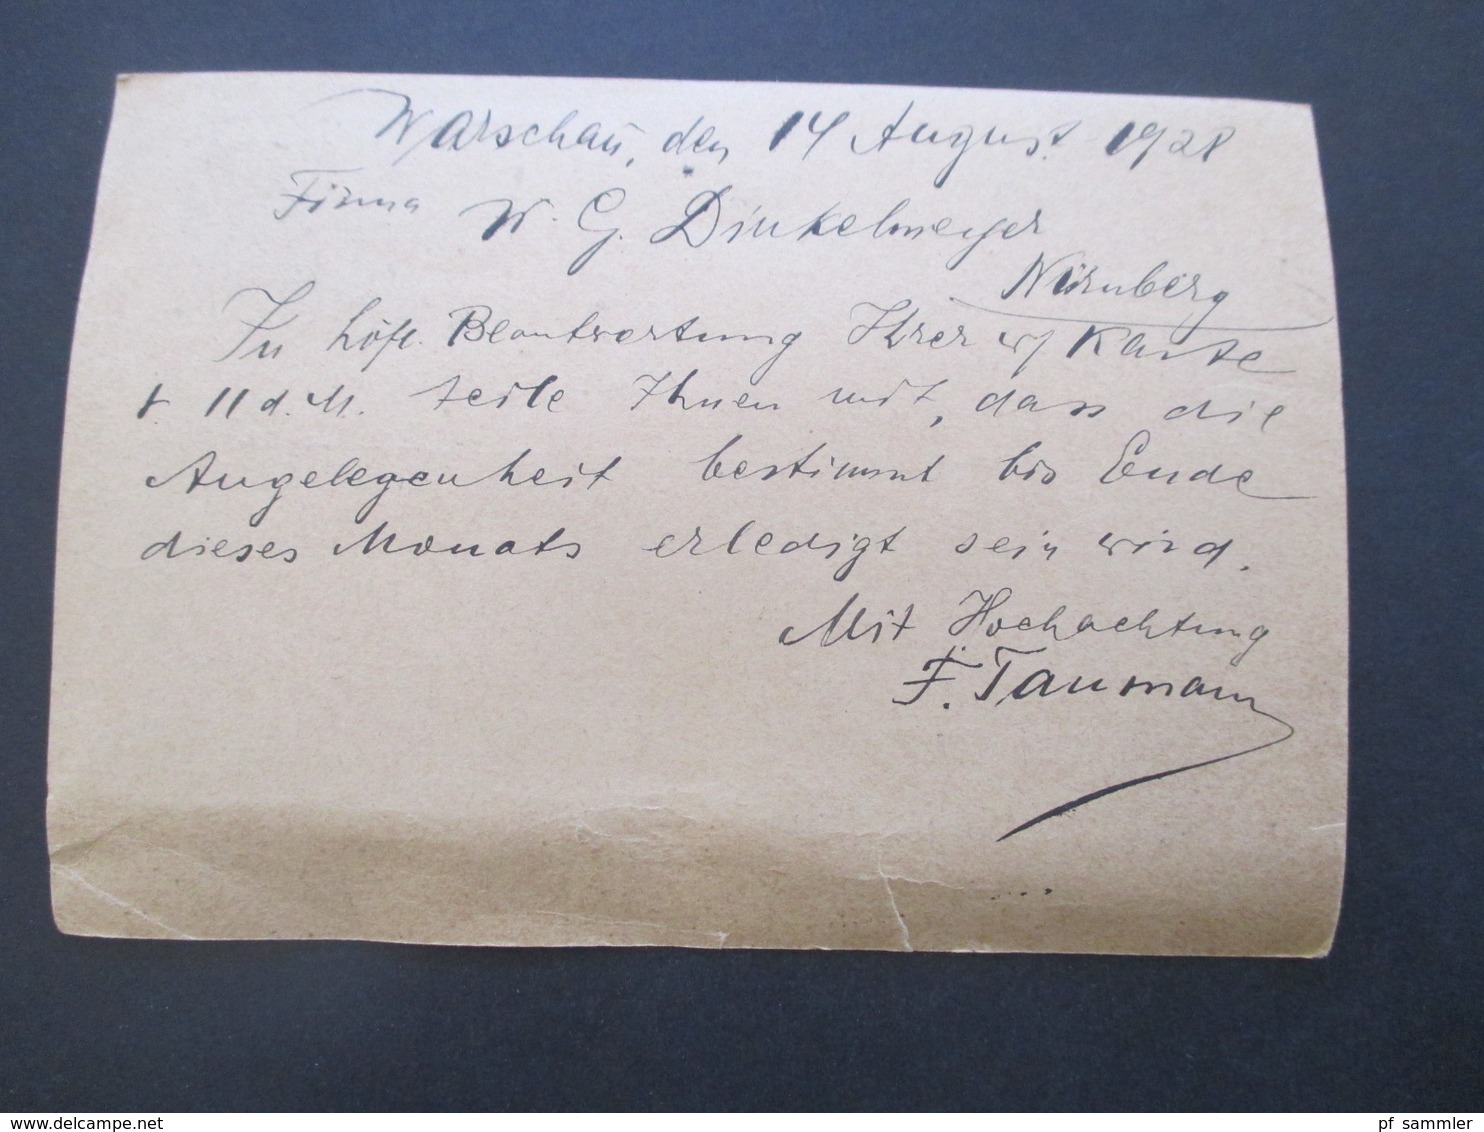 Warschau, den 14 August 1928
Firma W. G. Dinkelmeyer
Nürnberg
In höfl. Beantwortung Ihrer w/ Karte
v. 11 d. M. teile Ihnen mit, dass die
Angelegenheit bestimmt bis Ende
dieses Monats erledigt sein wird.
Mit Hochachtung
F. Taumann
pf sammler
delcampe.net